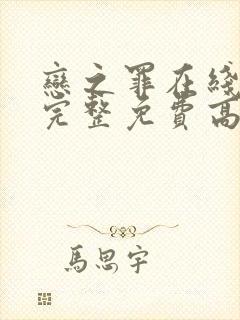 戀之罪在綫
完整免費高
馬思宇